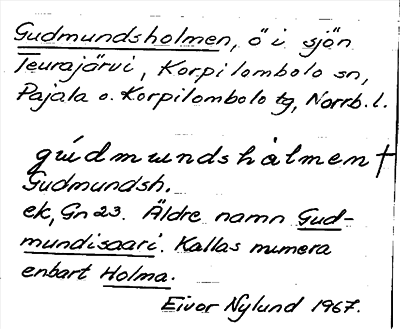 Gudmundsholmen, ö i sjön
Teurajärvi, Korpilombolo sn,
Pajala o. Korpilombolo tg, Norrb. l.
gúdmundshålmen †
Gudmundsh.
ek, Gn 23. Äldre namn Gud-
mundisaari. Kallas numera
enbart Holma.
Eivor Nylund 1967.